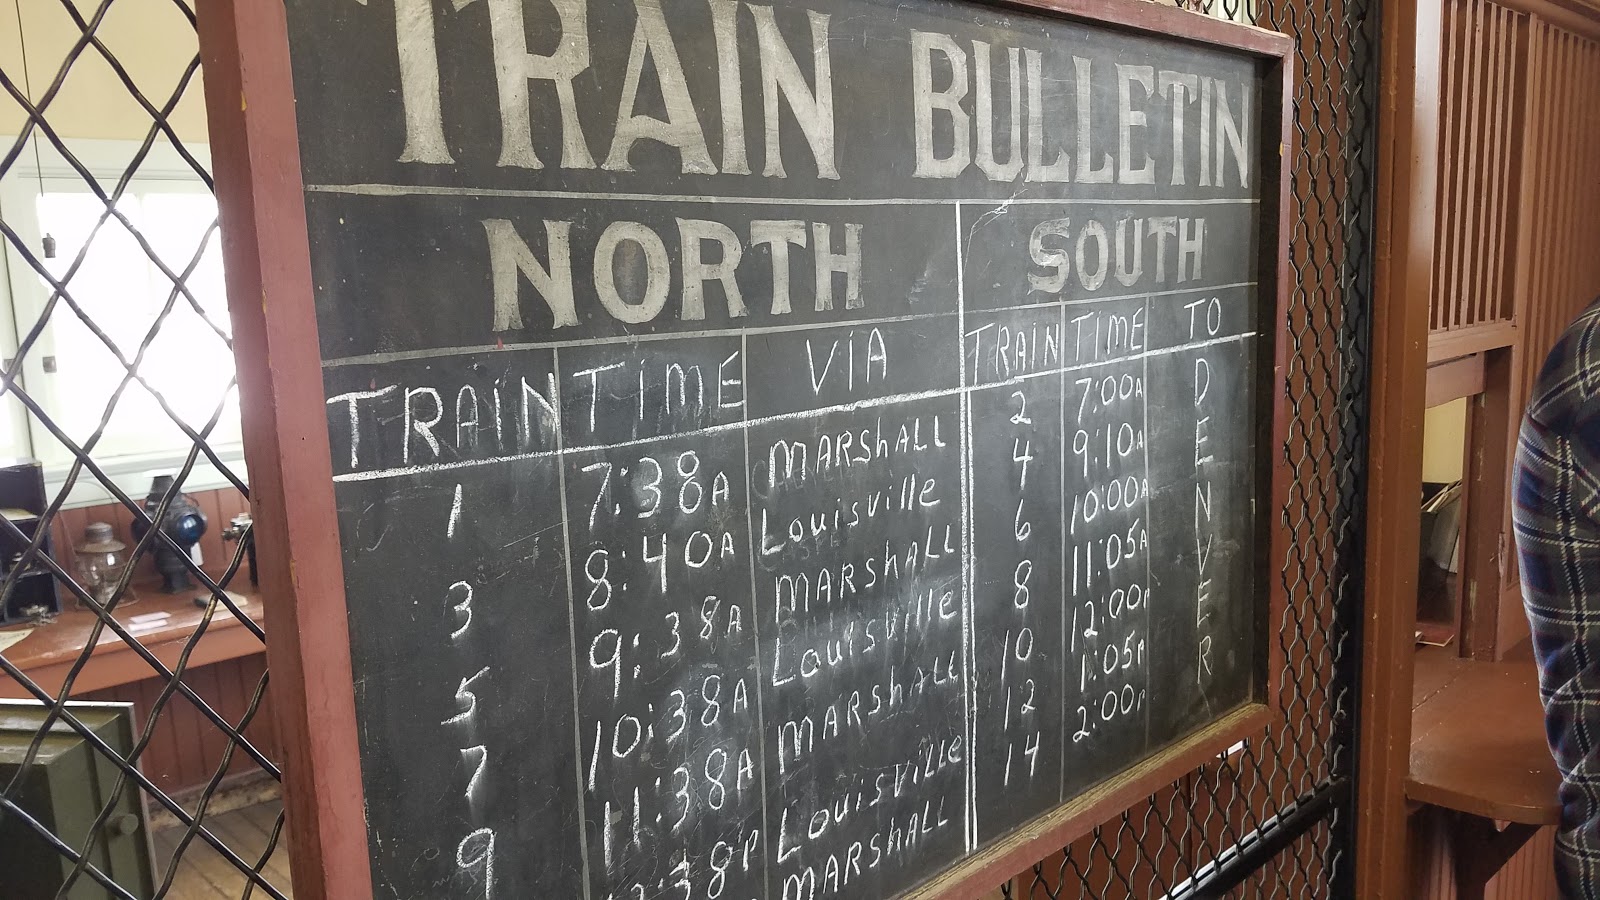 TRAIN BULLETIN
NORTH
TRAIN TIME VIA
1 7:38A MARSHALL
3 8:40A Louisville
5 9:38A MARSHALL
7 10:38A Louisville
9 11:38A MARSHALL
12:38P Louisville
MARSHALL
SOUTH
TRAIN TIME TO
2 7:00A
4 9:10A
6 10:00A
8 11:05A
10 12:00P
12 1:05P
14 2:00P
DENVER